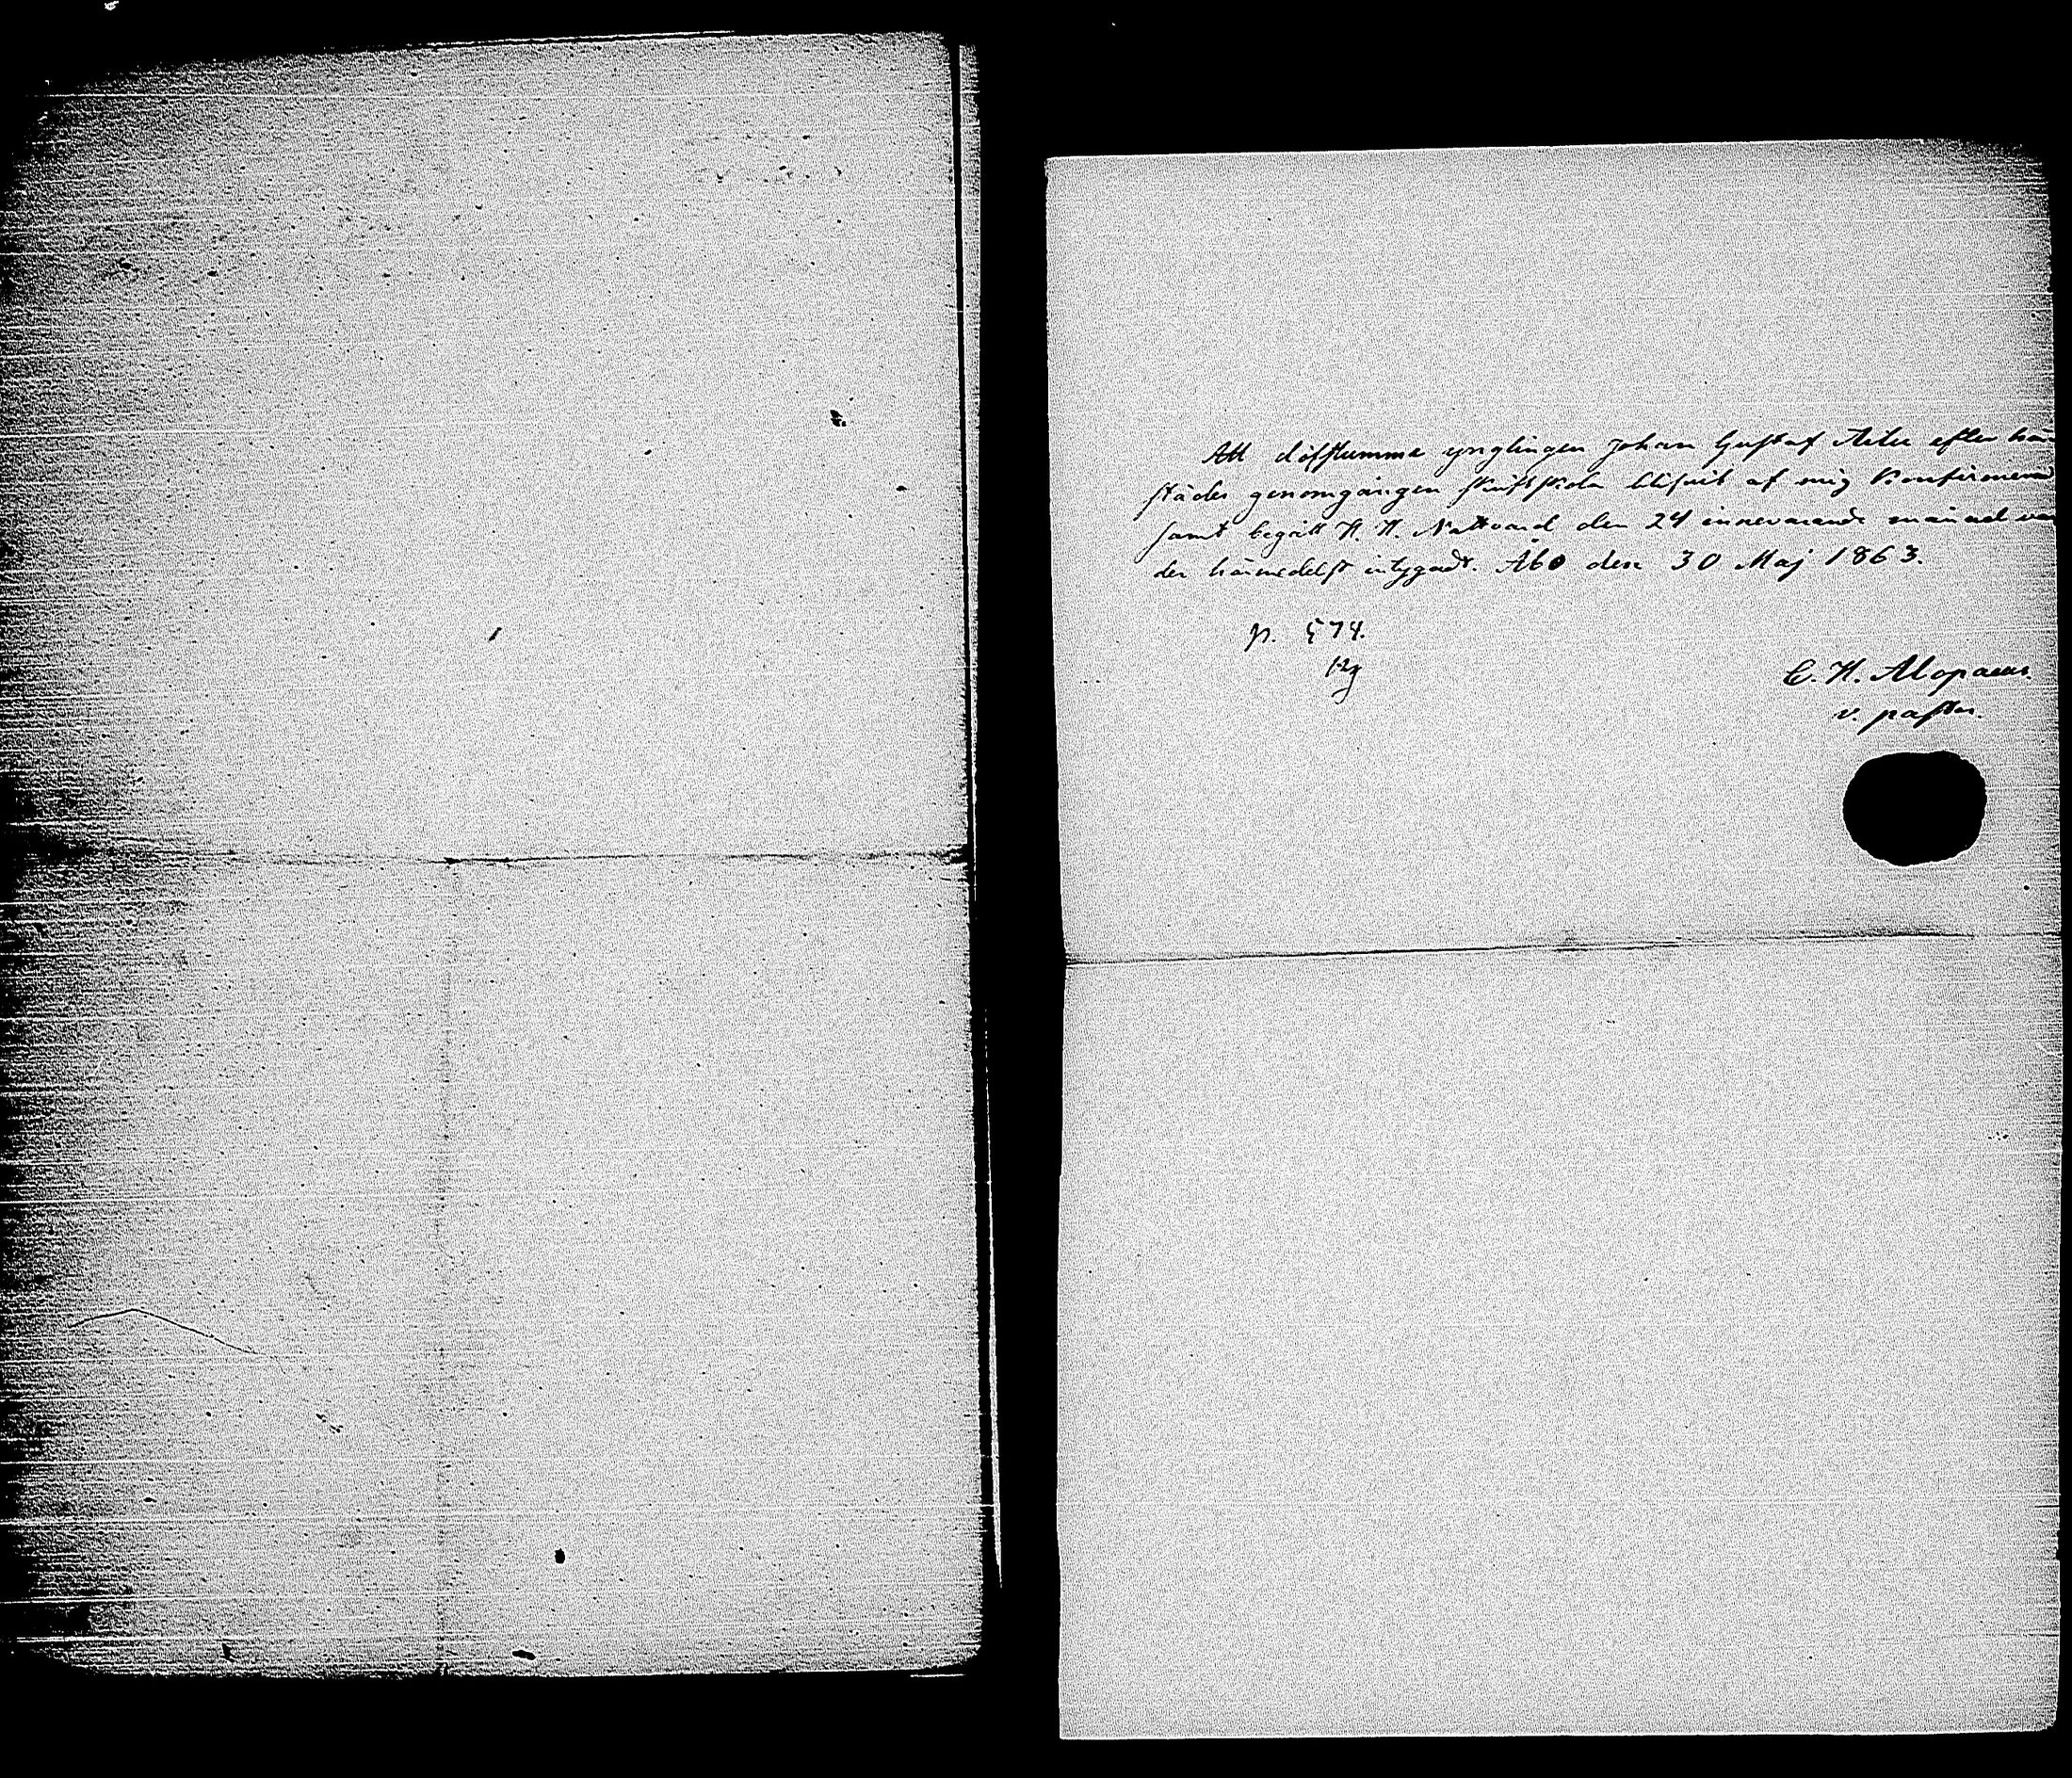 Att döfstumme ynglingen Johan Gustaf efter här
städes genomgången skriftskola blifvit af mig Konfirmerad
samt begått H. H. Nattvard den 24 innevarande månad var
der härmedelst intygadt. Åbo den 30 Maj 1863.
p. 574.
C. H. Alopaeus.
v. pastor.